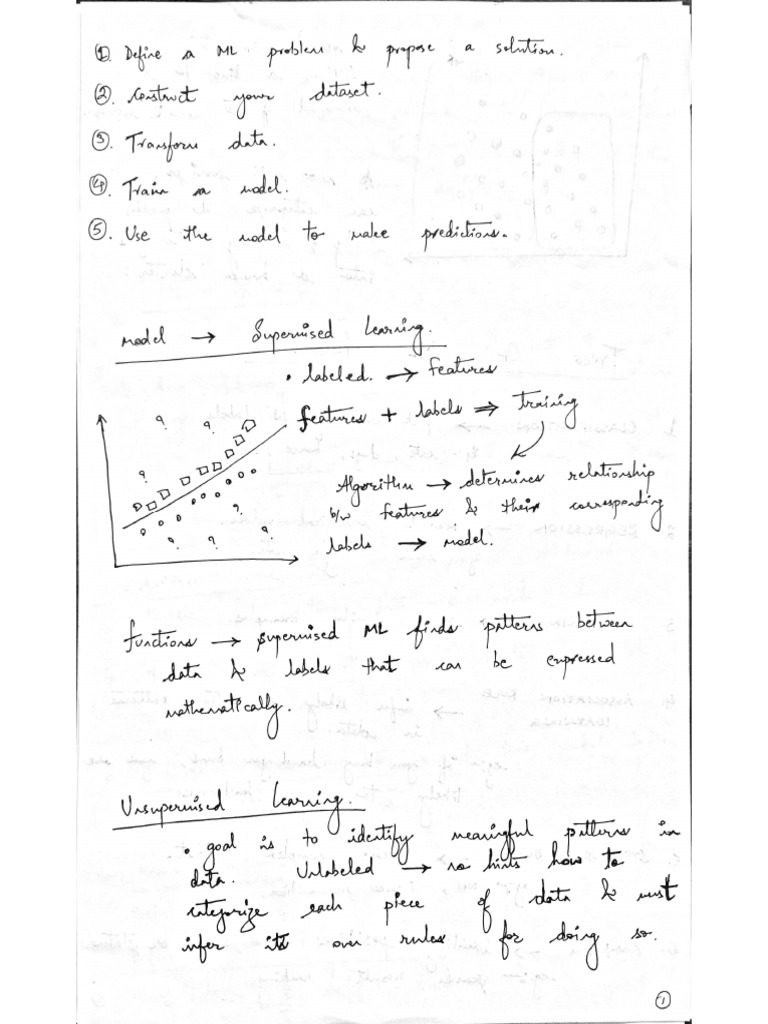 ①. Define a ML problem & propose a solution.
②. Construct your dataset.
③. Transform data.
④. Train a model.
⑤. Use the model to make predictions.
model → Supervised Learning.
• labeled. → features
features + labels ⇒ Training
Algorithm → determines relationship
b/w features & their corresponding
labels → model.
? ?
?
? ? ? ?
functions → supervised ML finds patterns between
data & labels that can be expressed
mathematically.
Unsupervised Learning.
• goal is to identify meaningful patterns in
data. Unlabeled → no hints how to
categorize each piece of data & must
infer its own rules for doing so.
①